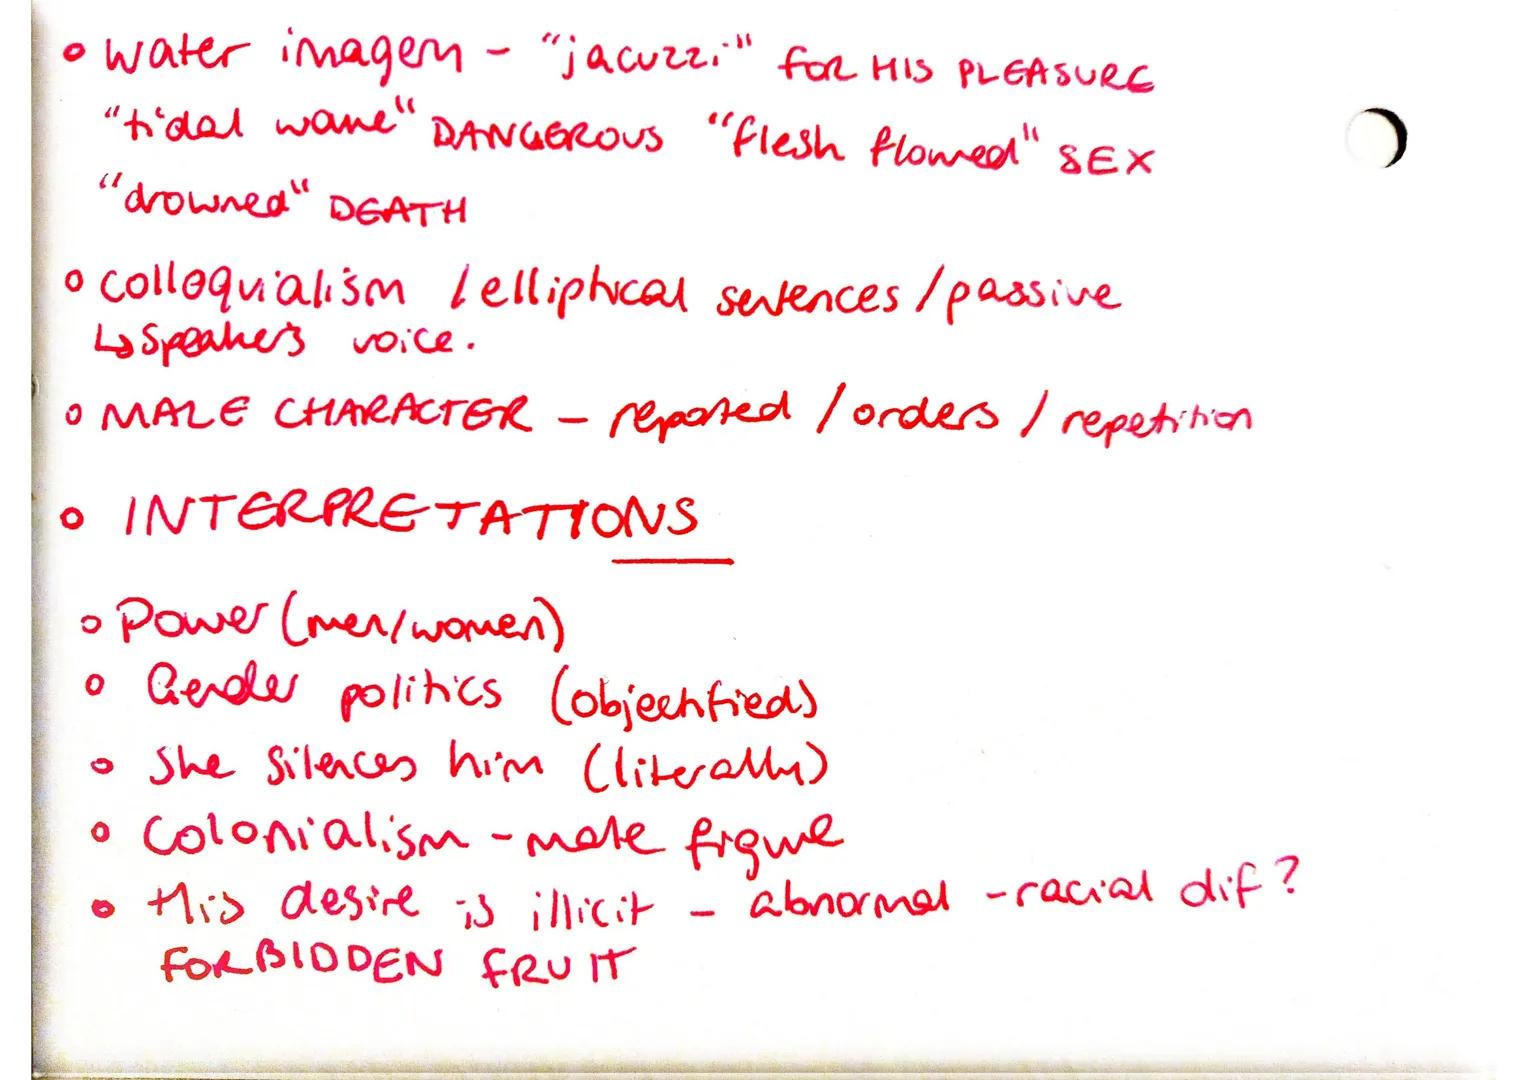 • water imagery - "jacuzzi" FOR HIS PLEASURE
"tidal wave" DANGEROUS "flesh flowed" SEX
"drowned" DEATH
• colloquialism / elliptical sentences / passive
↳ speaker's voice.
• MALE CHARACTER - reported / orders / repetition
• INTERPRETATIONS
• Power (men/women)
• Gender politics (objectified)
• She silences him (literally)
• Colonialism - male figure
• His desire is illicit - abnormal - racial dif?
FORBIDDEN FRUIT